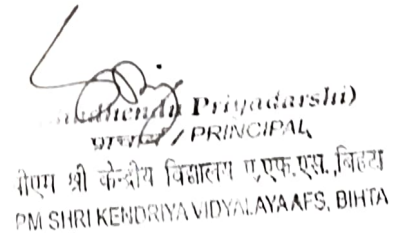 Priyadarshi)
प्राचार्य / PRINCIPAL
पीएम श्री केन्द्रीय विद्यालय ए.एफ.एस., बिहटा
PM SHRI KENDRIYA VIDYALAYA AFS, BIHTA